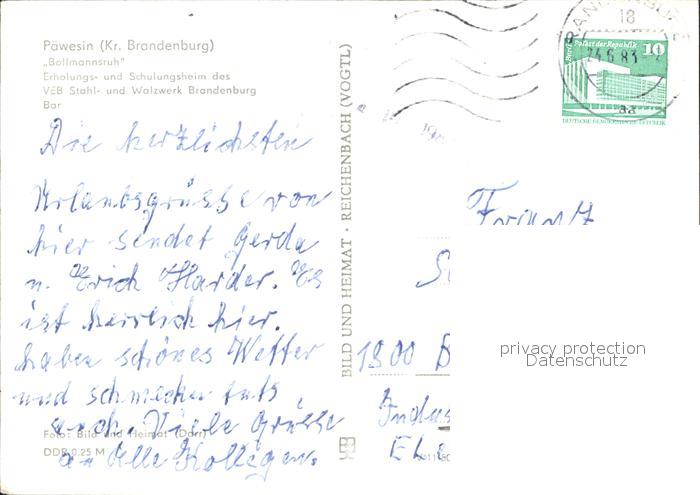 Päwesin (Kr. Brandenburg)
„Bollmannsruh"
Erholungs- und Schulungsheim des
VEB Stahl- und Walzwerk Brandenburg
Bar
Die herzlichsten
Urlaubsgrüsse von
hier sendet Gerda
u. Erich Harder. Es
ist herrlich hier.
haben schönes Wetter
und schmecken tuts
auch. Viele Grüsse
an Alle Kollegen.
Foto: Bild und Heimat (Dorr)
DDR 0,25 M
BILD UND HEIMAT · REICHENBACH (VOGTL)
18
24.6.83
Berlin Palast der Republik 10
DEUTSCHE DEMOKRATISCHE REPUBLIK
1800 B
Indus
privacy protection
Datenschutz